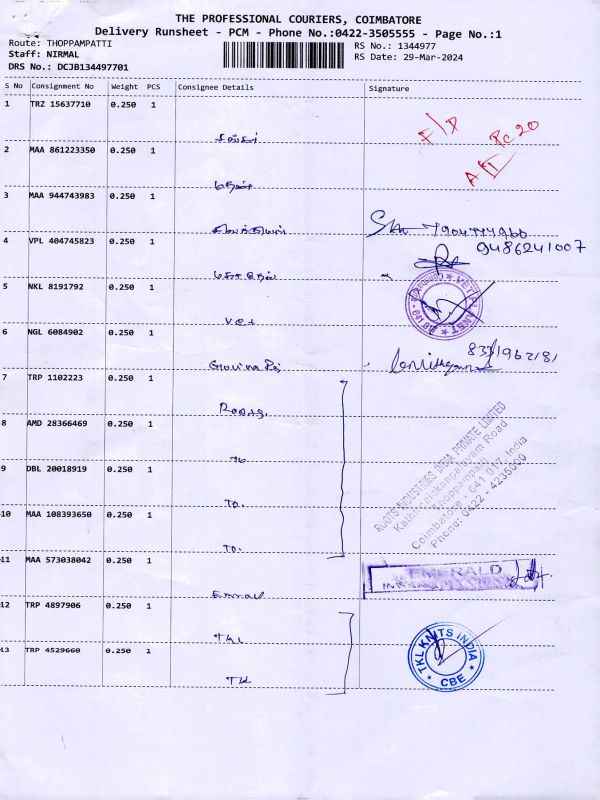 THE PROFESSIONAL COURIERS, COIMBATORE
Delivery Runsheet - PCM - Phone No.:0422-3505555 - Page No.:1
Route: THOPPAMPATTI
Staff: NIRMAL
DRS No.: DCJB134497701
RS No.: 1344977
RS Date: 29-Mar-2024
S No Consignment No Weight PCS Consignee Details Signature
1 TRZ 15637710 0.250 1
F/P
Pc 20
2 MAA 861223350 0.250 1
3 MAA 944743983 0.250 1
7904774966
4 VPL 404745823 0.250 1
9486241007
5 NKL 8191792 0.250 1
Vet
6 NGL 6084902 0.250 1
7 TRP 1102223 0.250 1
Roots
8 AMD 28366469 0.250 1
To
9 DBL 20018919 0.250 1
To.
10 MAA 108393650 0.250 1
To.
ROOTS INDUSTRIES INDIA PRIVATE LIMITED
Kathirnaickenpalayam Road
Thoppampatti
Coimbatore - 641 017, India
Phone: 0422 - 4235000
11 MAA 573038042 0.250 1
EMERALD
12 TRP 4897906 0.250 1
TKL
13 TRP 4529660 0.250 1
TKL
TKL KNITS INDIA
CBE